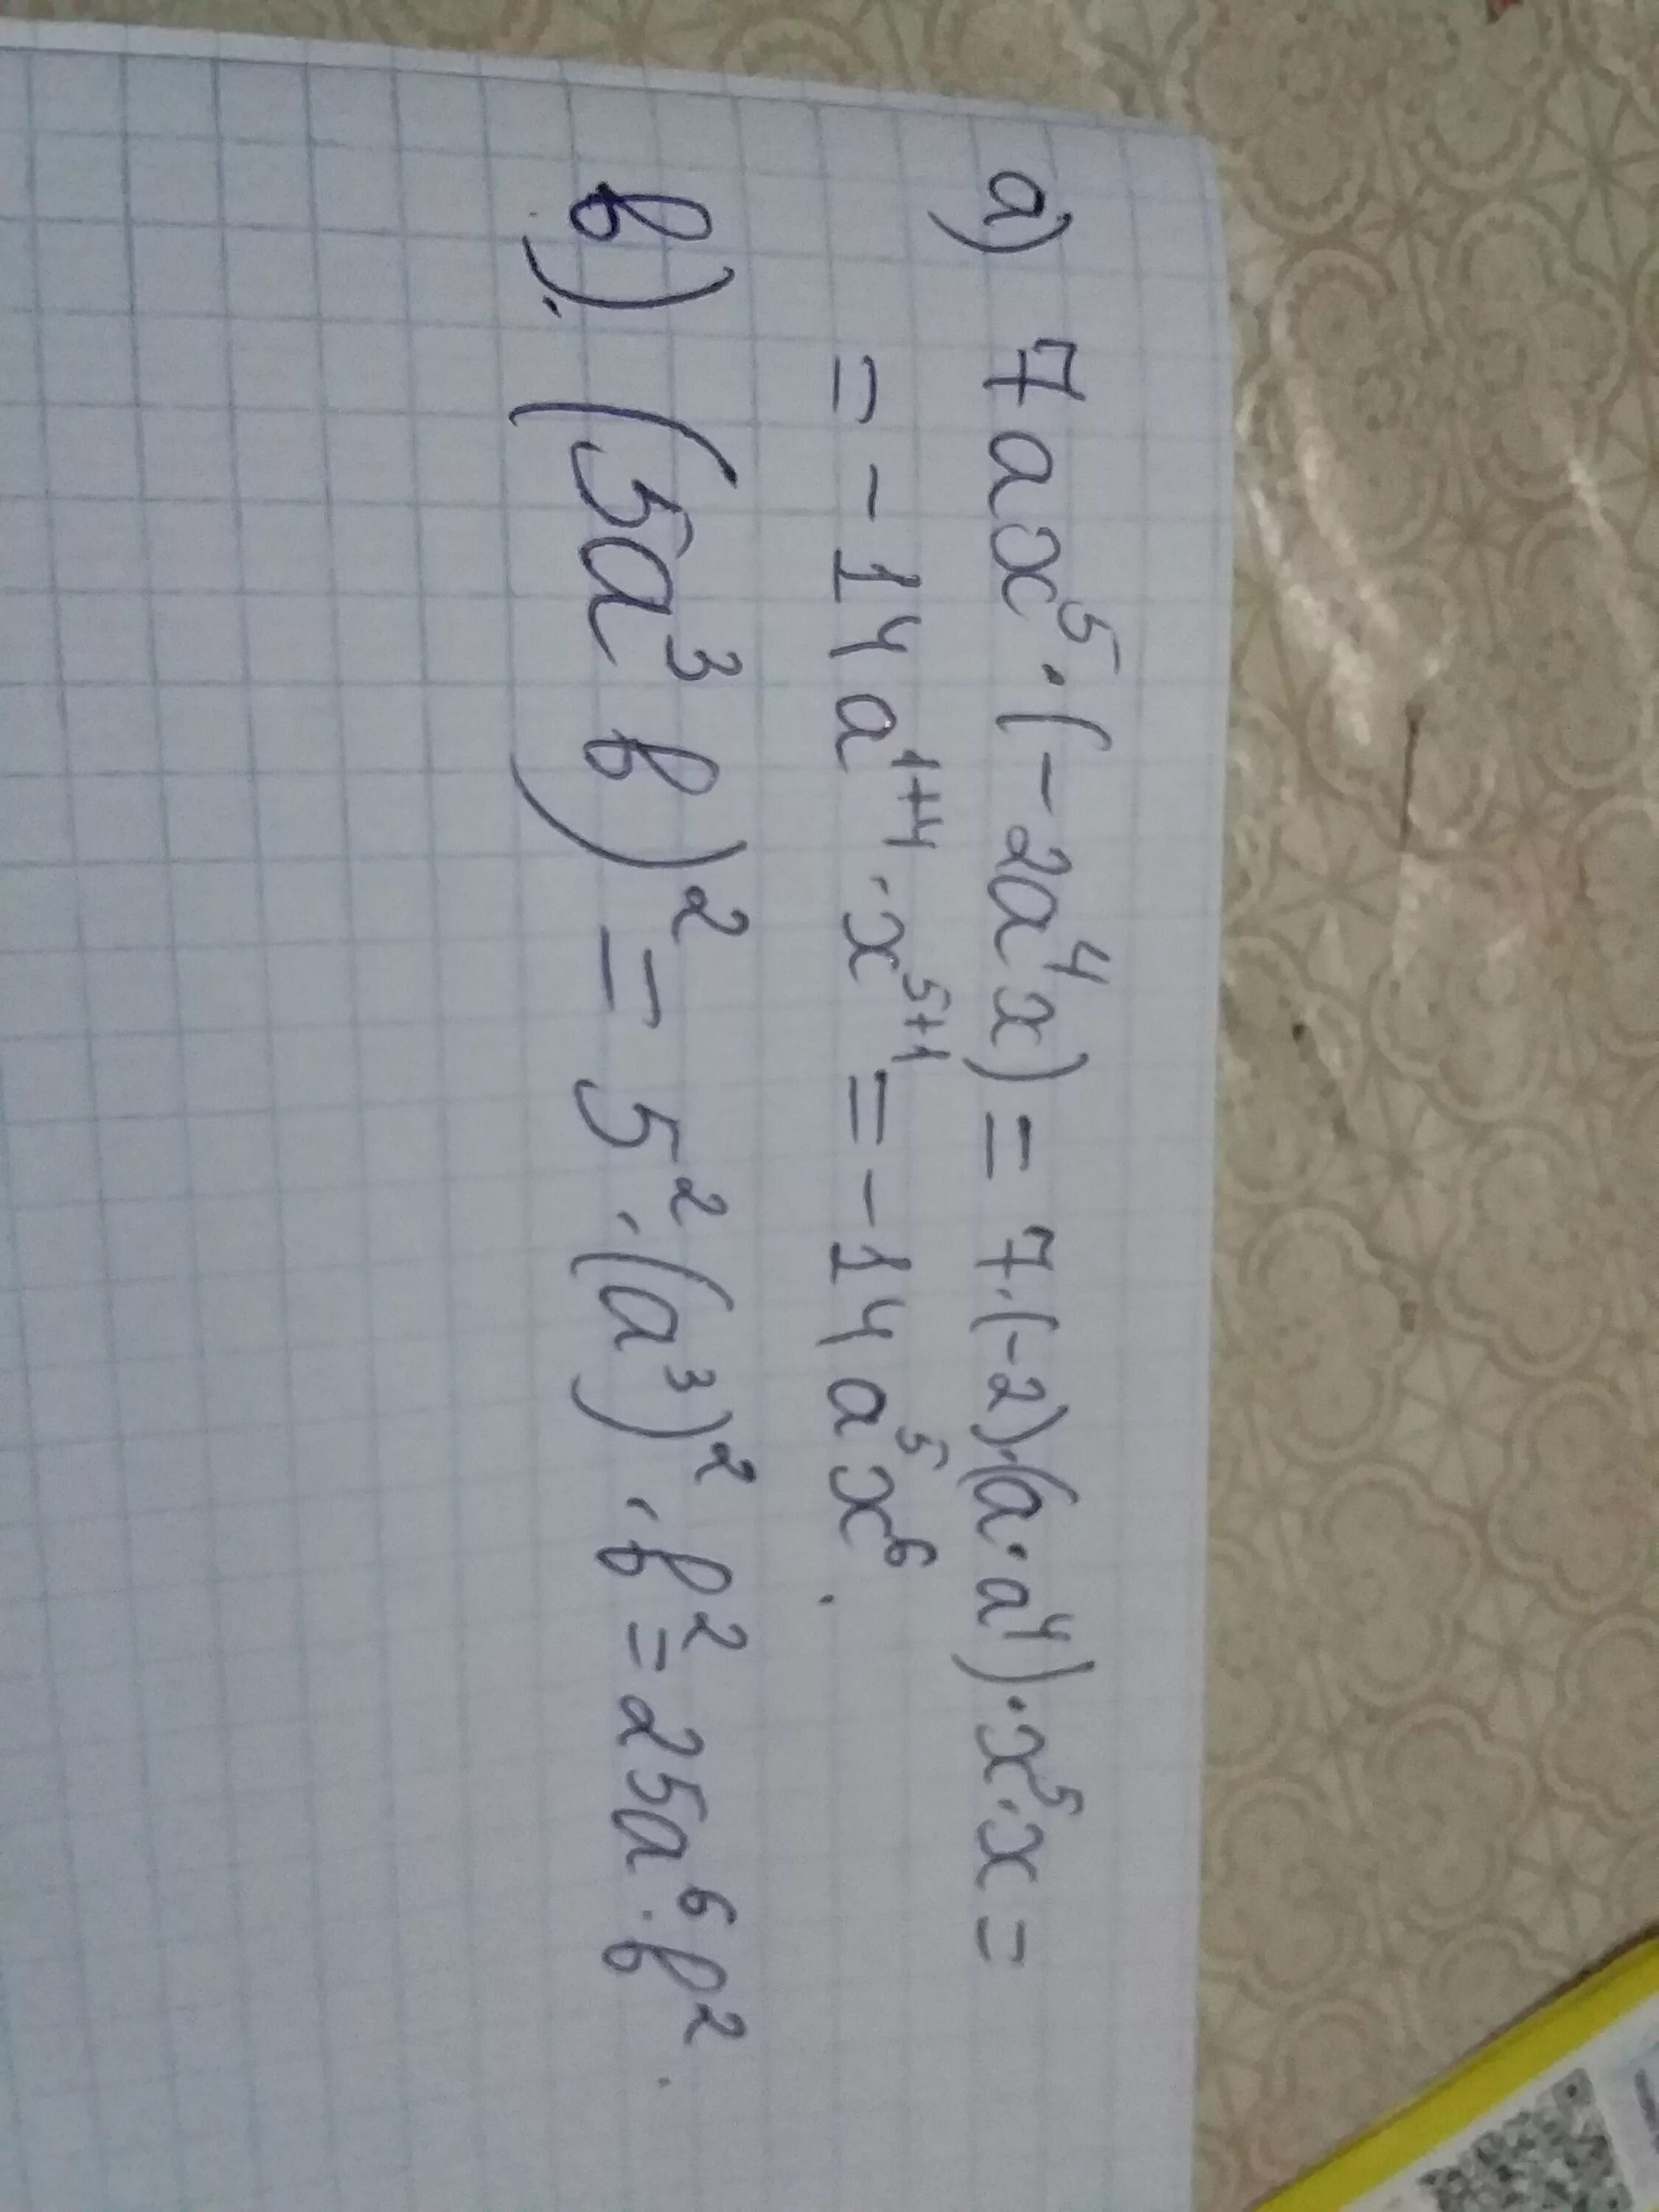 а) 7ax⁵·(-2a⁴x) = 7·(-2)·(a·a⁴)·x⁵·x =
= -14a¹⁺⁴·x⁵⁺¹ = -14a⁵x⁶.
в) (5a³b)² = 5²·(a³)²·b² = 25a⁶·b².